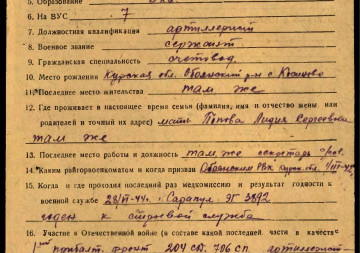 5. Образование
6. На ВУС 7
7. Должностная квалификация артиллерист
8. Военное звание сержант
9. Гражданская специальность счетовод
10. Место рождения Курская обл. Обоянский р-н с.
11. Последнее место жительства там же
12. Где проживает в настоящее время семья (фамилия, имя и отчество жены или
родителей и точный их адрес) мать Попова Лидия Сергеевна
там же
13. Последнее место работы и должность там же секретарь
14. Каким райгорвоенкоматом и когда призван Обоянским РВК
15. Когда и где проходил последний раз медкомиссию и результат годности к
военной службе 28/VI-44г. Сарапул ЭГ 3892
годен к строевой служба
16. Участие в Отечественной войне (в составе какой последней части в качестве
1ый прибалт. фронт 204 СД. 706 СП. артиллерист-